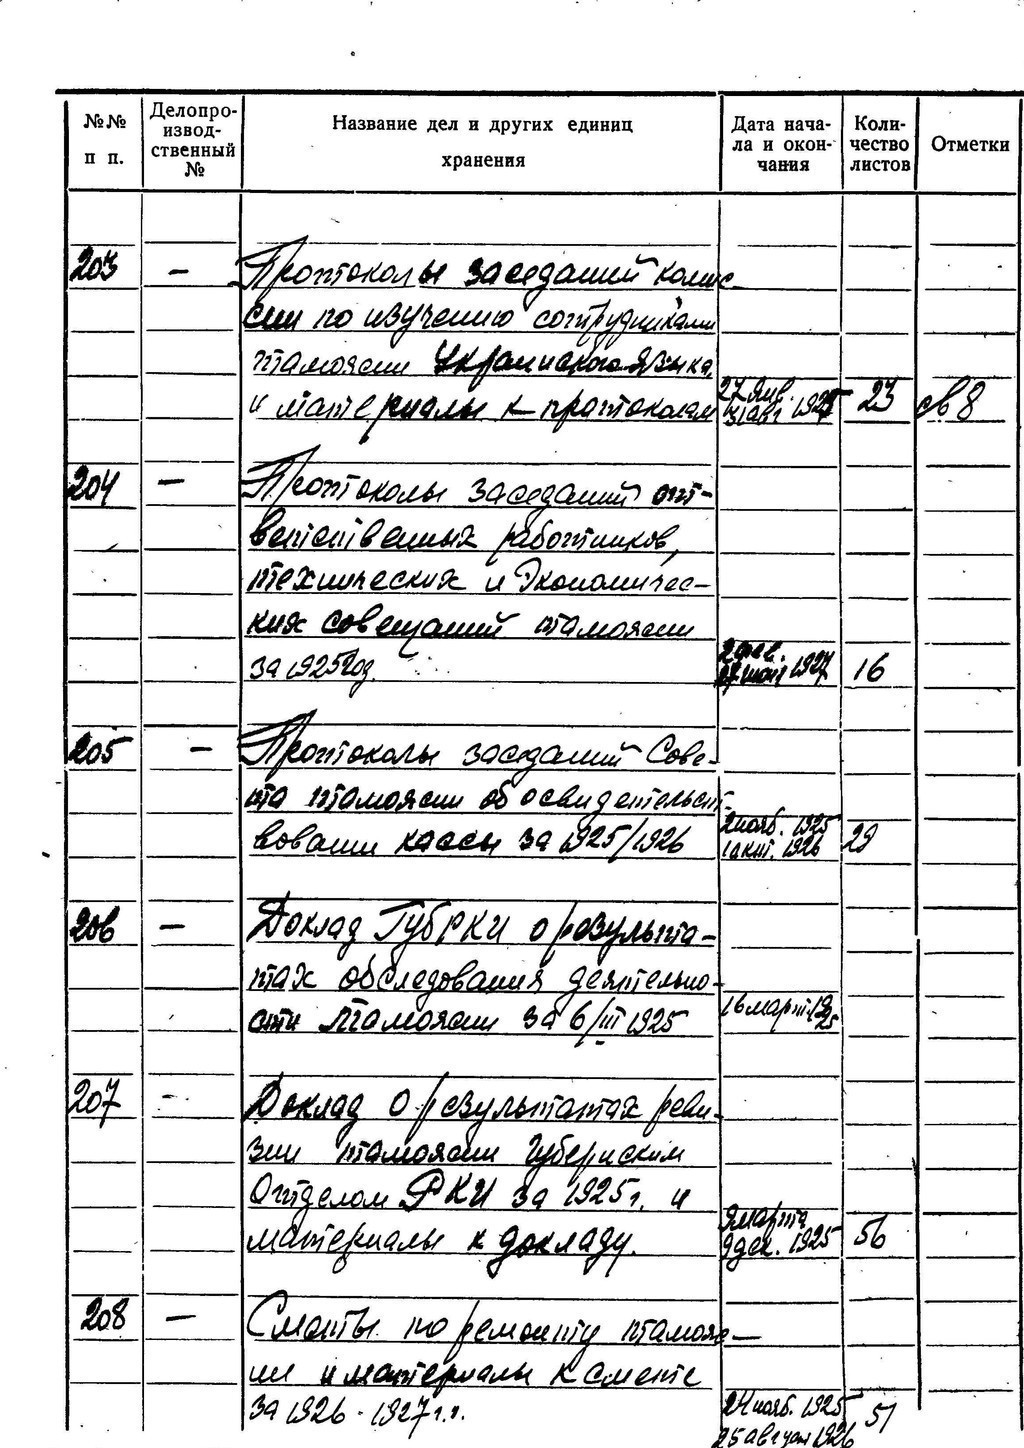 №№ п п.
Делопро-
извод-
ственный
№
Название дел и других единиц
хранения
Дата нача-
ла и окон-
чания
Коли-
чество
листов
Отметки
203 — Протоколы заседаний комис-
сии по изучению сотрудниками
таможни Украинского языка,
и материалы к протоколам 27 янв. 31 авг 1925 23 св 8
204 — Протоколы заседаний от-
ветственных работников,
технических и экономичес-
ких совещаний таможни
за 1925 год. 16
205 — Протоколы заседаний Сове-
та таможни об освидетельст-
вовании кассы за 1925/1926 2 нояб. 1925 1 окт. 1926 29
206 — Доклад ГубРКИ о результа-
тах обследования деятельно-
сти Таможни за 6/III 1925 16 март 1925
207 — Доклад о результатах реви-
зии таможни Губернским
Отделом РКИ за 1925 г. и
материалы к докладу. 9 марта 9 дек. 1925 56
208 — Сметы по ремонту таможе-
ни и материалы к смете
за 1926 - 1927 г.г. 24 нояб. 1925 51
25 август 1926